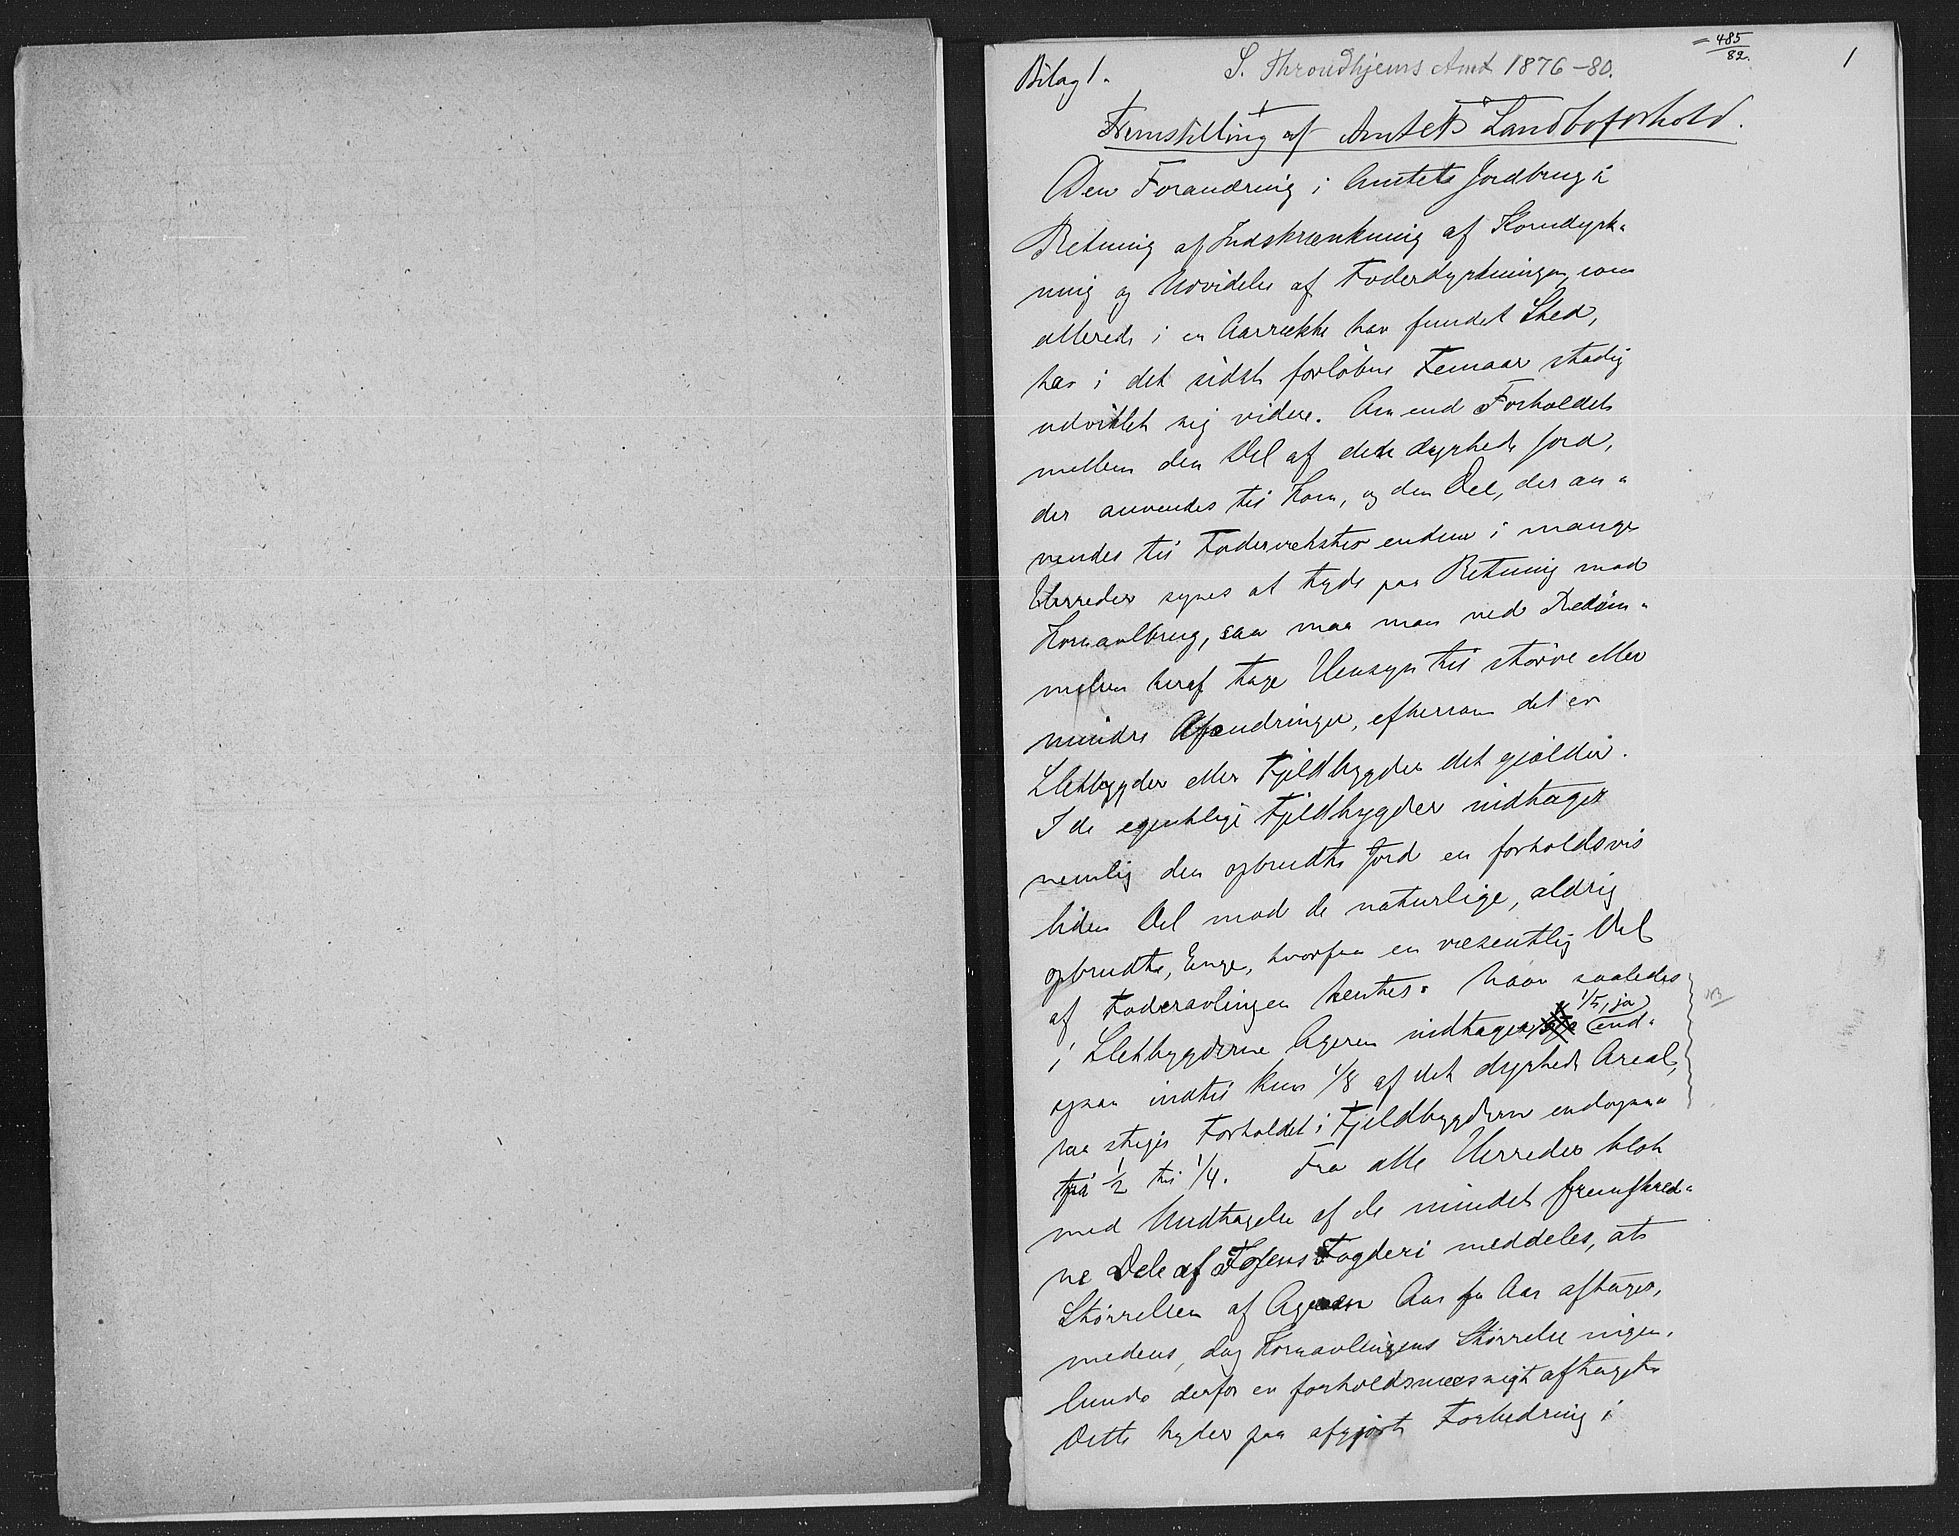 Bilag 1.
S. Throndhjems Amt 1876-80.
= 485/82.
1
Fremstilling af Amtets Landboforhold.
Den Forandring i Amtets Jordbrug i
Retning af Indskrænkning af Korndyrk-
ning og Udvidelse af Foderdyrkningen, som
allerede i en Aarrække har fundet Sted,
har i det sidst forløbne Femaar stadig
udviklet sig videre. Om end Forholdet
mellem den Del af den dyrkede Jord,
der anvendes til Korn, og den Del, der an-
vendes til Fodervekster endnu i mange
Herreder synes at tyde paa Retning mod
Kornavlbrug, saa maa man ved Bedøm-
melsen heraf tage Hensyn til større eller
mindre Afændringer, eftersom det er
Sletbygder eller Fjeldbygder det gjælder.
I de egentlige Fjeldbygder indtager
nemlig den opbrudte Jord en forholdsvis
liden Del mod de naturlige, aldrig
opbrudte, Enge, hvorfra en væsentlig Del
af Foderavlingen hentes. Naar saaledes
i Sletbygderne Ageren indtager 1/5, ja end-
NB
ogsaa indtil kun 1/8 af det dyrkede Areal,
saa stiger Forholdet i Fjeldbygderne endogsaa
fra 1/2 til 1/4. Fra alle Herreder blot
med Undtagelse af de mindst fremskred-
ne Dele af Fosens Fogderi meddeles, at
Størrelsen af Ageren Aar for Aar aftager,
medens dog Kornavlingens Størrelse ingen-
lunde derfor er forholdsmæssigt aftaget.
Dette tyder paa afgjort Forbedring i